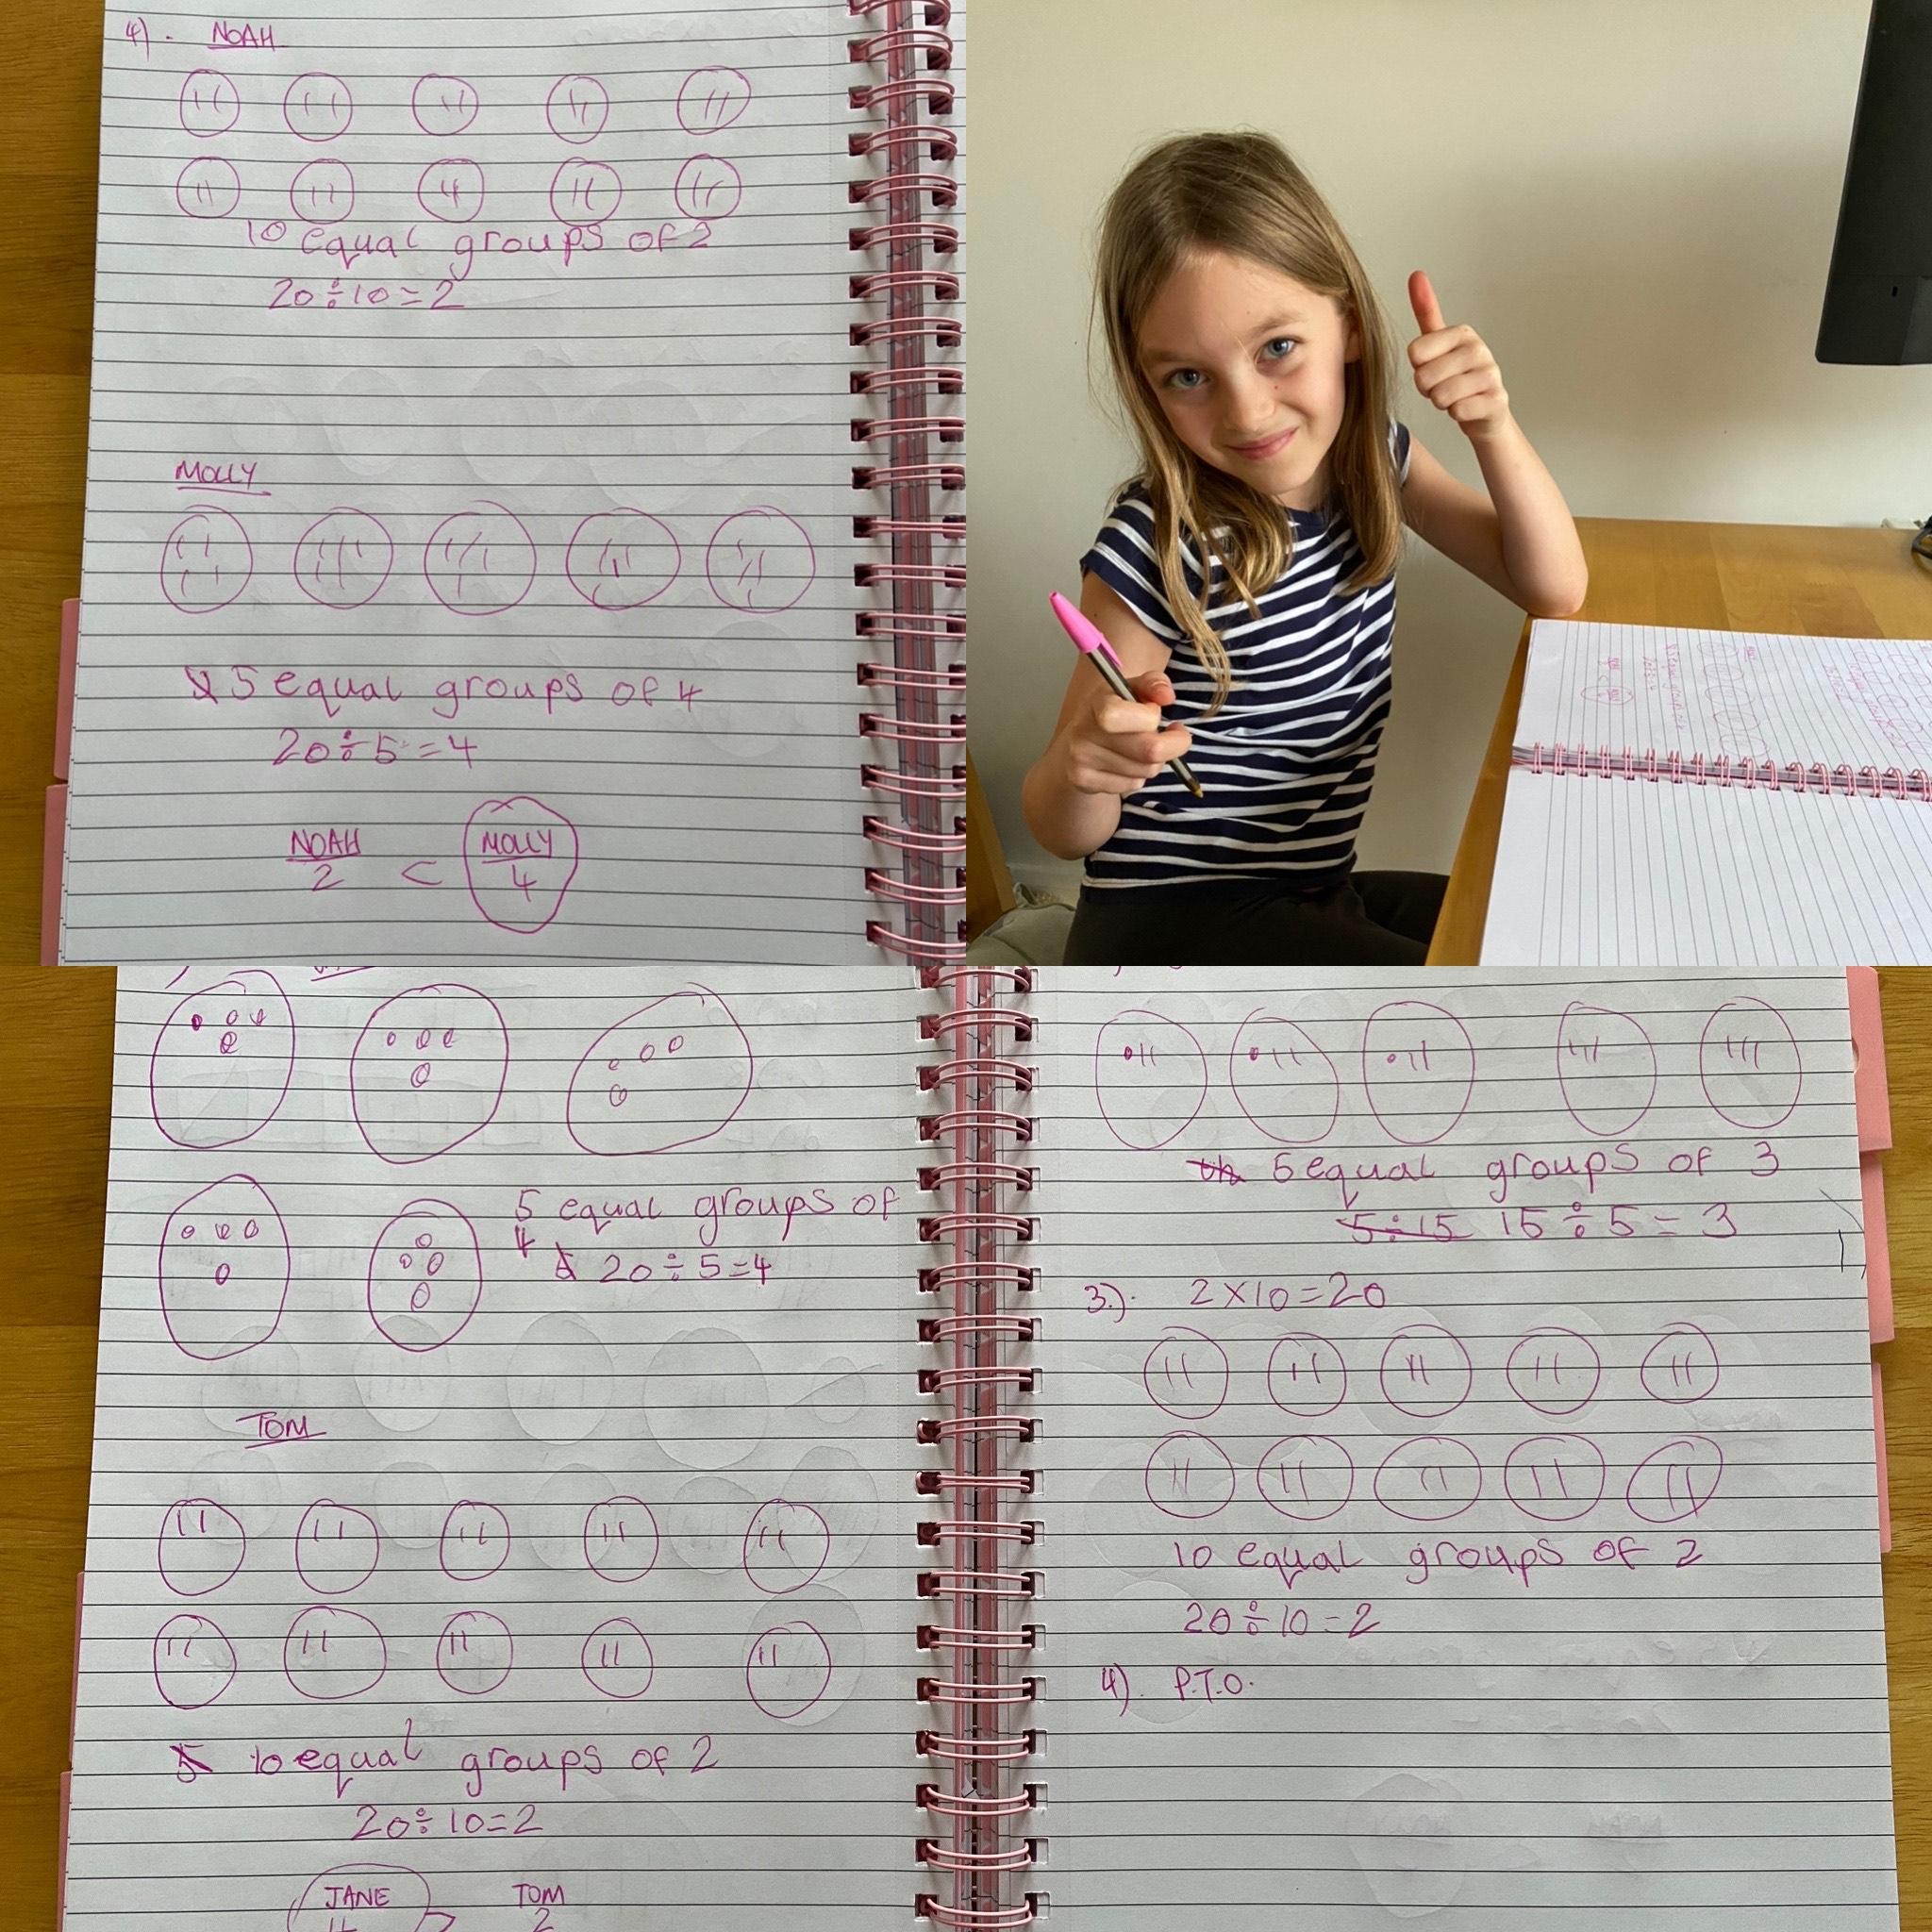 4). NOAH
10 equal groups of 2
20÷10=2
MOLLY
5 equal groups of 4
20÷5=4
NOAH MOLLY
2 < 4
5 equal groups of
4
20÷5=4
TOM
10 equal groups of 2
20÷10=2
JANE TOM
4 > 2
5 equal groups of 3
5÷15 15÷5=3
3). 2×10=20
10 equal groups of 2
20÷10=2
4). P.T.O.